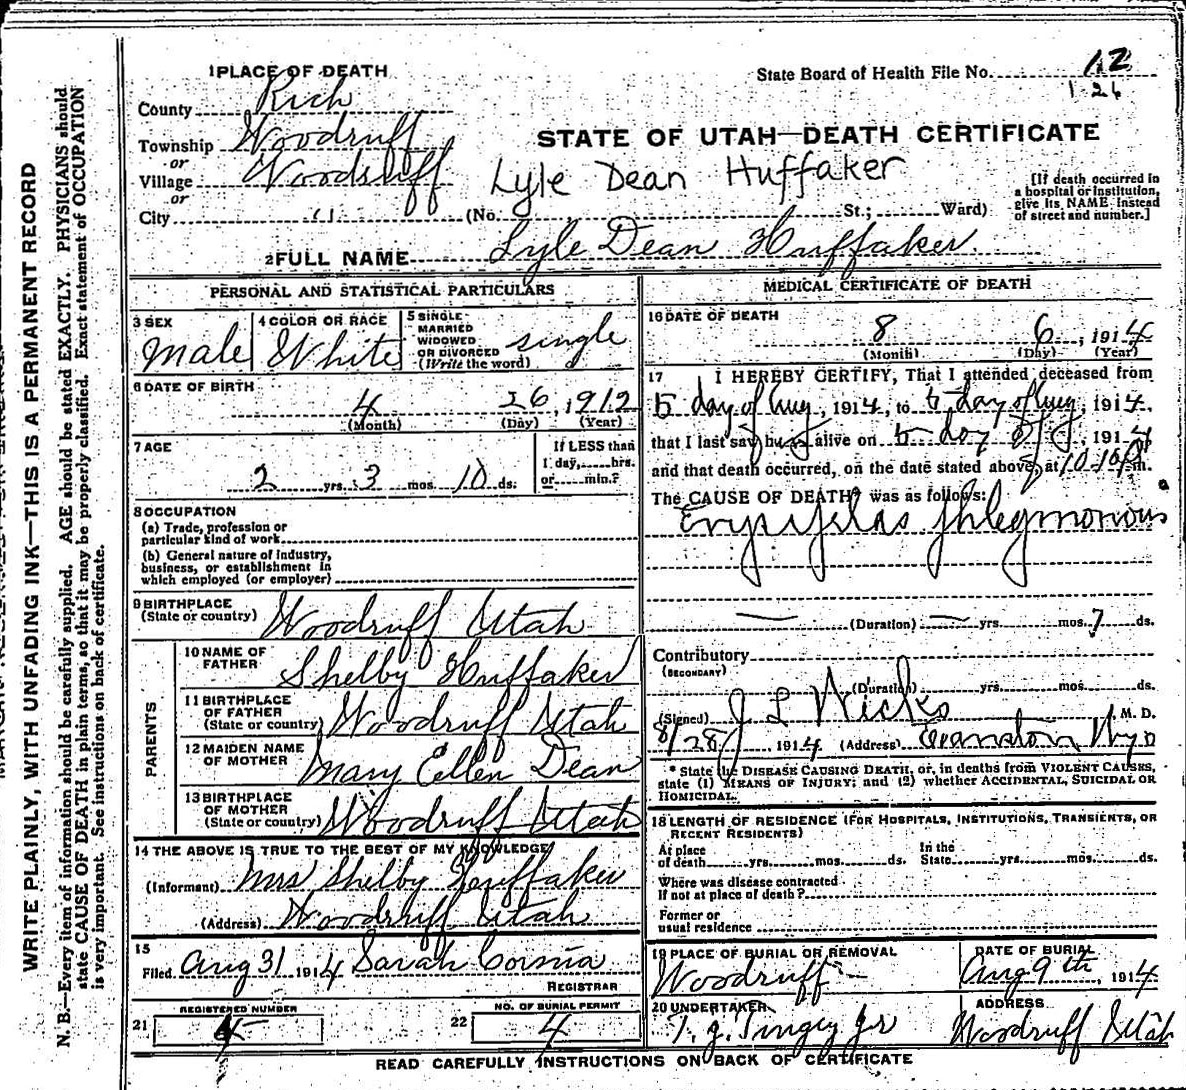 1 PLACE OF DEATH
State Board of Health File No. 12
1 26
County Rich
Township Woodruff
or
Village Woodruff
or
City "
(No. St.; Ward)
STATE OF UTAH—DEATH CERTIFICATE
Lyle Dean Huffaker
[If death occurred in
a hospital or institution,
give its NAME instead
of street and number.]
2 FULL NAME Lyle Dean Huffaker.
PERSONAL AND STATISTICAL PARTICULARS
3 SEX
Male
4 COLOR OR RACE
White
5 SINGLE
MARRIED
WIDOWED
OR DIVORCED
(Write the word)
single
6 DATE OF BIRTH
4 26, 1912
(Month) (Day) (Year)
7 AGE
2 yrs. 3 mos. 10 ds.
If LESS than
1 day, hrs.
or min.?
8 OCCUPATION
(a) Trade, profession or
particular kind of work
(b) General nature of industry,
business, or establishment in
which employed (or employer)
9 BIRTHPLACE
(State or country) Woodruff Utah
PARENTS
10 NAME OF
FATHER Shelby Huffaker
11 BIRTHPLACE
OF FATHER
(State or country) Woodruff Utah
12 MAIDEN NAME
OF MOTHER Mary Ellen Dean
13 BIRTHPLACE
OF MOTHER
(State or country) Woodruff Utah
14 THE ABOVE IS TRUE TO THE BEST OF MY KNOWLEDGE
(Informant) Mrs Shelby Huffaker
(Address) Woodruff Utah
15
Filed Aug 31 1914 Sarah Cornia
REGISTRAR
21 REGISTERED NUMBER
4
22 NO. OF BURIAL PERMIT
4
MEDICAL CERTIFICATE OF DEATH
16 DATE OF DEATH
8 6, 1914
(Month) (Day) (Year)
17 I HEREBY CERTIFY, That I attended deceased from
5 day of Aug, 1914, to 6 day of Aug, 1914,
that I last saw him alive on day of, 1914
and that death occurred, on the date stated above, at 10-10 P m.
The CAUSE OF DEATH* was as follows:
Erysipelas phlegmonous
(Duration) yrs. mos. 7 ds.
Contributory
(SECONDARY)
(Duration) yrs. mos. ds.
(Signed) J L Wicks, M. D.
8/28, 1914 (Address) Evanston Wyo
* State the DISEASE CAUSING DEATH, or, in deaths from VIOLENT CAUSES,
state (1) MEANS OF INJURY; and (2) whether ACCIDENTAL, SUICIDAL OR
HOMICIDAL.
18 LENGTH OF RESIDENCE (FOR HOSPITALS, INSTITUTIONS, TRANSIENTS, OR
RECENT RESIDENTS)
At place
of death yrs. mos. ds.
In the
State yrs. mos. ds.
Where was disease contracted
if not at place of death?
Former or
usual residence
19 PLACE OF BURIAL OR REMOVAL
Woodruff
DATE OF BURIAL
Aug 9th, 1914
20 UNDERTAKER
T. J. Tingey Jr
ADDRESS
Woodruff Utah
READ CAREFULLY INSTRUCTIONS ON BACK OF CERTIFICATE
WRITE PLAINLY, WITH UNFADING INK—THIS IS A PERMANENT RECORD
N. B.—Every item of information should be carefully supplied. AGE should be stated EXACTLY. PHYSICIANS should
state CAUSE OF DEATH in plain terms, so that it may be properly classified. Exact statement of OCCUPATION
is very important. See instructions on back of certificate.